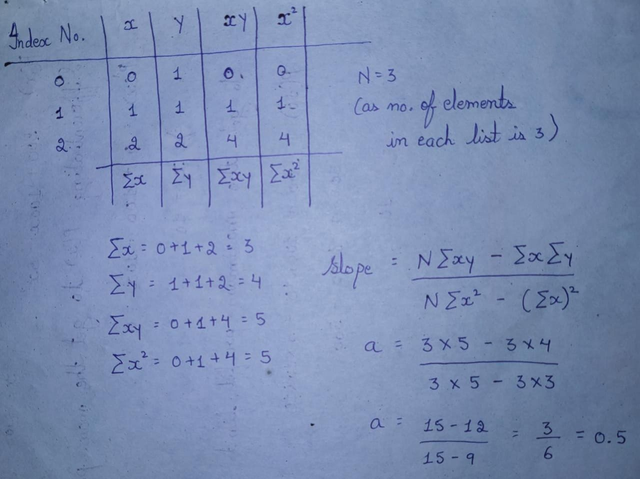 Index No. x y xy x²
0 0 1 0 0
1 1 1 1 1
2 2 2 4 4
Σx Σy Σxy Σx²
N = 3
(as no. of elements
in each list is 3)
Σx = 0+1+2 = 3
Σy = 1+1+2 = 4
Σxy = 0+1+4 = 5
Σx² = 0+1+4 = 5
slope = NΣxy - ΣxΣy / NΣx² - (Σx)²
a = 3 x 5 - 3 x 4 / 3 x 5 - 3 x 3
a = 15 - 12 / 15 - 9 = 3 / 6 = 0.5